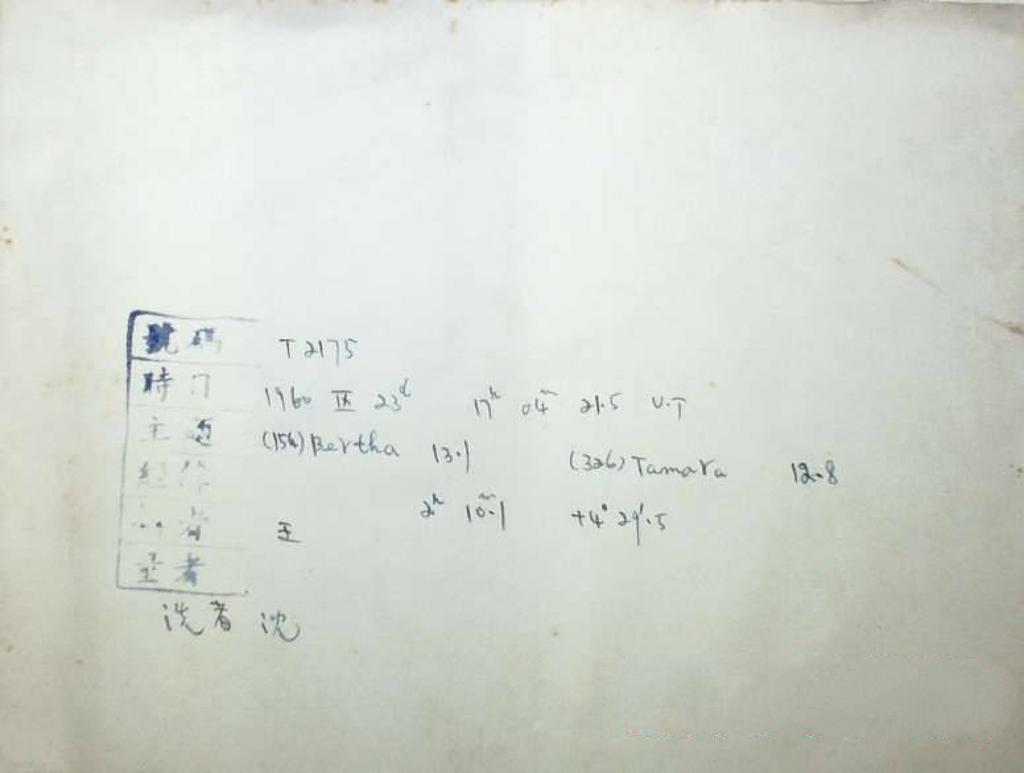 號碼 T2175
時 1960 IX 23d 17h 04m 21.5 U.T
主 (154) Bertha 13.1 (326) Tamara 12.8
2h 10m.1 +4° 29'.5
者 王
者
洗者 沈